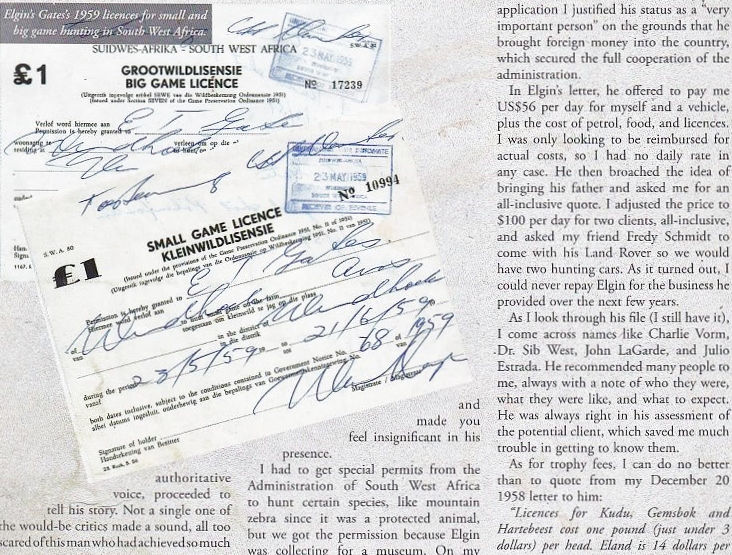 Elgin's Gates's 1959 licences for small and
big game hunting in South West Africa.
SUIDWES-AFRIKA - SOUTH WEST AFRICA
£1
GROOTWILDLISENSIE
BIG GAME LICENCE
(Uitgereik ingevolge artikel SEWE van die Wildbeskerming Ordonnansie 1951)
(Issued under Section SEVEN of the Game Preservation Ordinance 1951)
No 17239
23 MAY 1959
Verlof word hiermee aan
Permission is hereby granted to E T Gates
woonagtig te
residing at Windhoek
verleen om op die
23 MAY 1959
RECEIVER OF REVENUE
No 10994
S.W.A. 80
£1
SMALL GAME LICENCE
KLEINWILDLISENSIE
(Issued under the provisions of the Game Preservation Ordinance 1951, No. 11 of 1951)
E T Gates
Permission is hereby granted to
Hiermee word verlof aan
Windhoek
in the district of
in die distrik
Windhoek
during the period
vanaf
23/5/59 to
tot 21/6/59
both dates inclusive, subject to the conditions contained in Government Notice No. 68 of 1959
Signature of holder
Handtekening van Besitter
Magistrate
authoritative
voice, proceeded to
tell his story. Not a single one of
the would-be critics made a sound, all too
scared of this man who had achieved so much
and
made you
feel insignificant in his
presence.
I had to get special permits from the
Administration of South West Africa
to hunt certain species, like mountain
zebra since it was a protected animal,
but we got the permission because Elgin
was collecting for a museum. On my
application I justified his status as a "very
important person" on the grounds that he
brought foreign money into the country,
which secured the full cooperation of the
administration.
In Elgin's letter, he offered to pay me
US$56 per day for myself and a vehicle,
plus the cost of petrol, food, and licences.
I was only looking to be reimbursed for
actual costs, so I had no daily rate in
any case. He then broached the idea of
bringing his father and asked me for an
all-inclusive quote. I adjusted the price to
$100 per day for two clients, all-inclusive,
and asked my friend Fredy Schmidt to
come with his Land Rover so we would
have two hunting cars. As it turned out, I
could never repay Elgin for the business he
provided over the next few years.
As I look through his file (I still have it),
I come across names like Charlie Vorm,
Dr. Sib West, John LaGarde, and Julio
Estrada. He recommended many people to
me, always with a note of who they were,
what they were like, and what to expect.
He was always right in his assessment of
the potential client, which saved me much
trouble in getting to know them.
As for trophy fees, I can do no better
than to quote from my December 20
1958 letter to him:
"Licences for Kudu, Gemsbok and
Hartebeest cost one pound (just under 3
dollars) per head. Eland is 14 dollars per